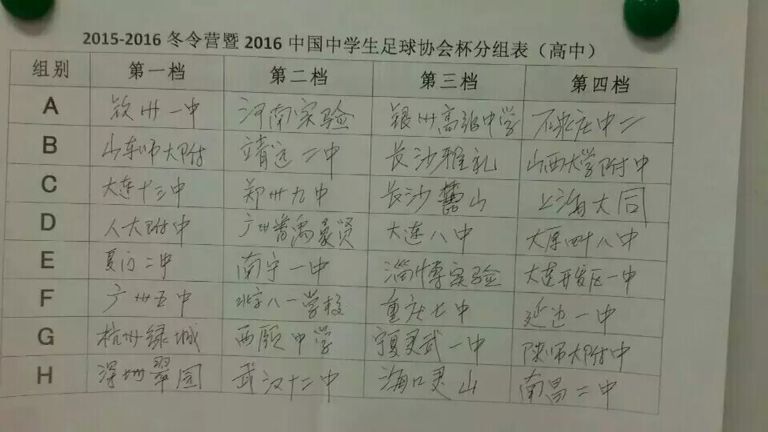 2015-2016 冬令营暨 2016 中国中学生足球协会杯分组表（高中）
组别 第一档 第二档 第三档 第四档
A 钦州一中 河南实验 银川高级中学 石家庄中二
B 山东师大附 靖远二中 长沙雅礼 山西大学附中
C 大连十三中 郑州九中 长沙麓山 上海大同
D 人大附中 广州番禺象贤 大连八中 太原四十八中
E 厦门二中 南宁一中 淄博实验 大连开发区一中
F 广州五中 北京八一学校 重庆七中 延边一中
G 杭州绿城 西颐中学 宁夏灵武一中 陕师大附中
H 深圳翠园 武汉十二中 海口灵山 南昌二中